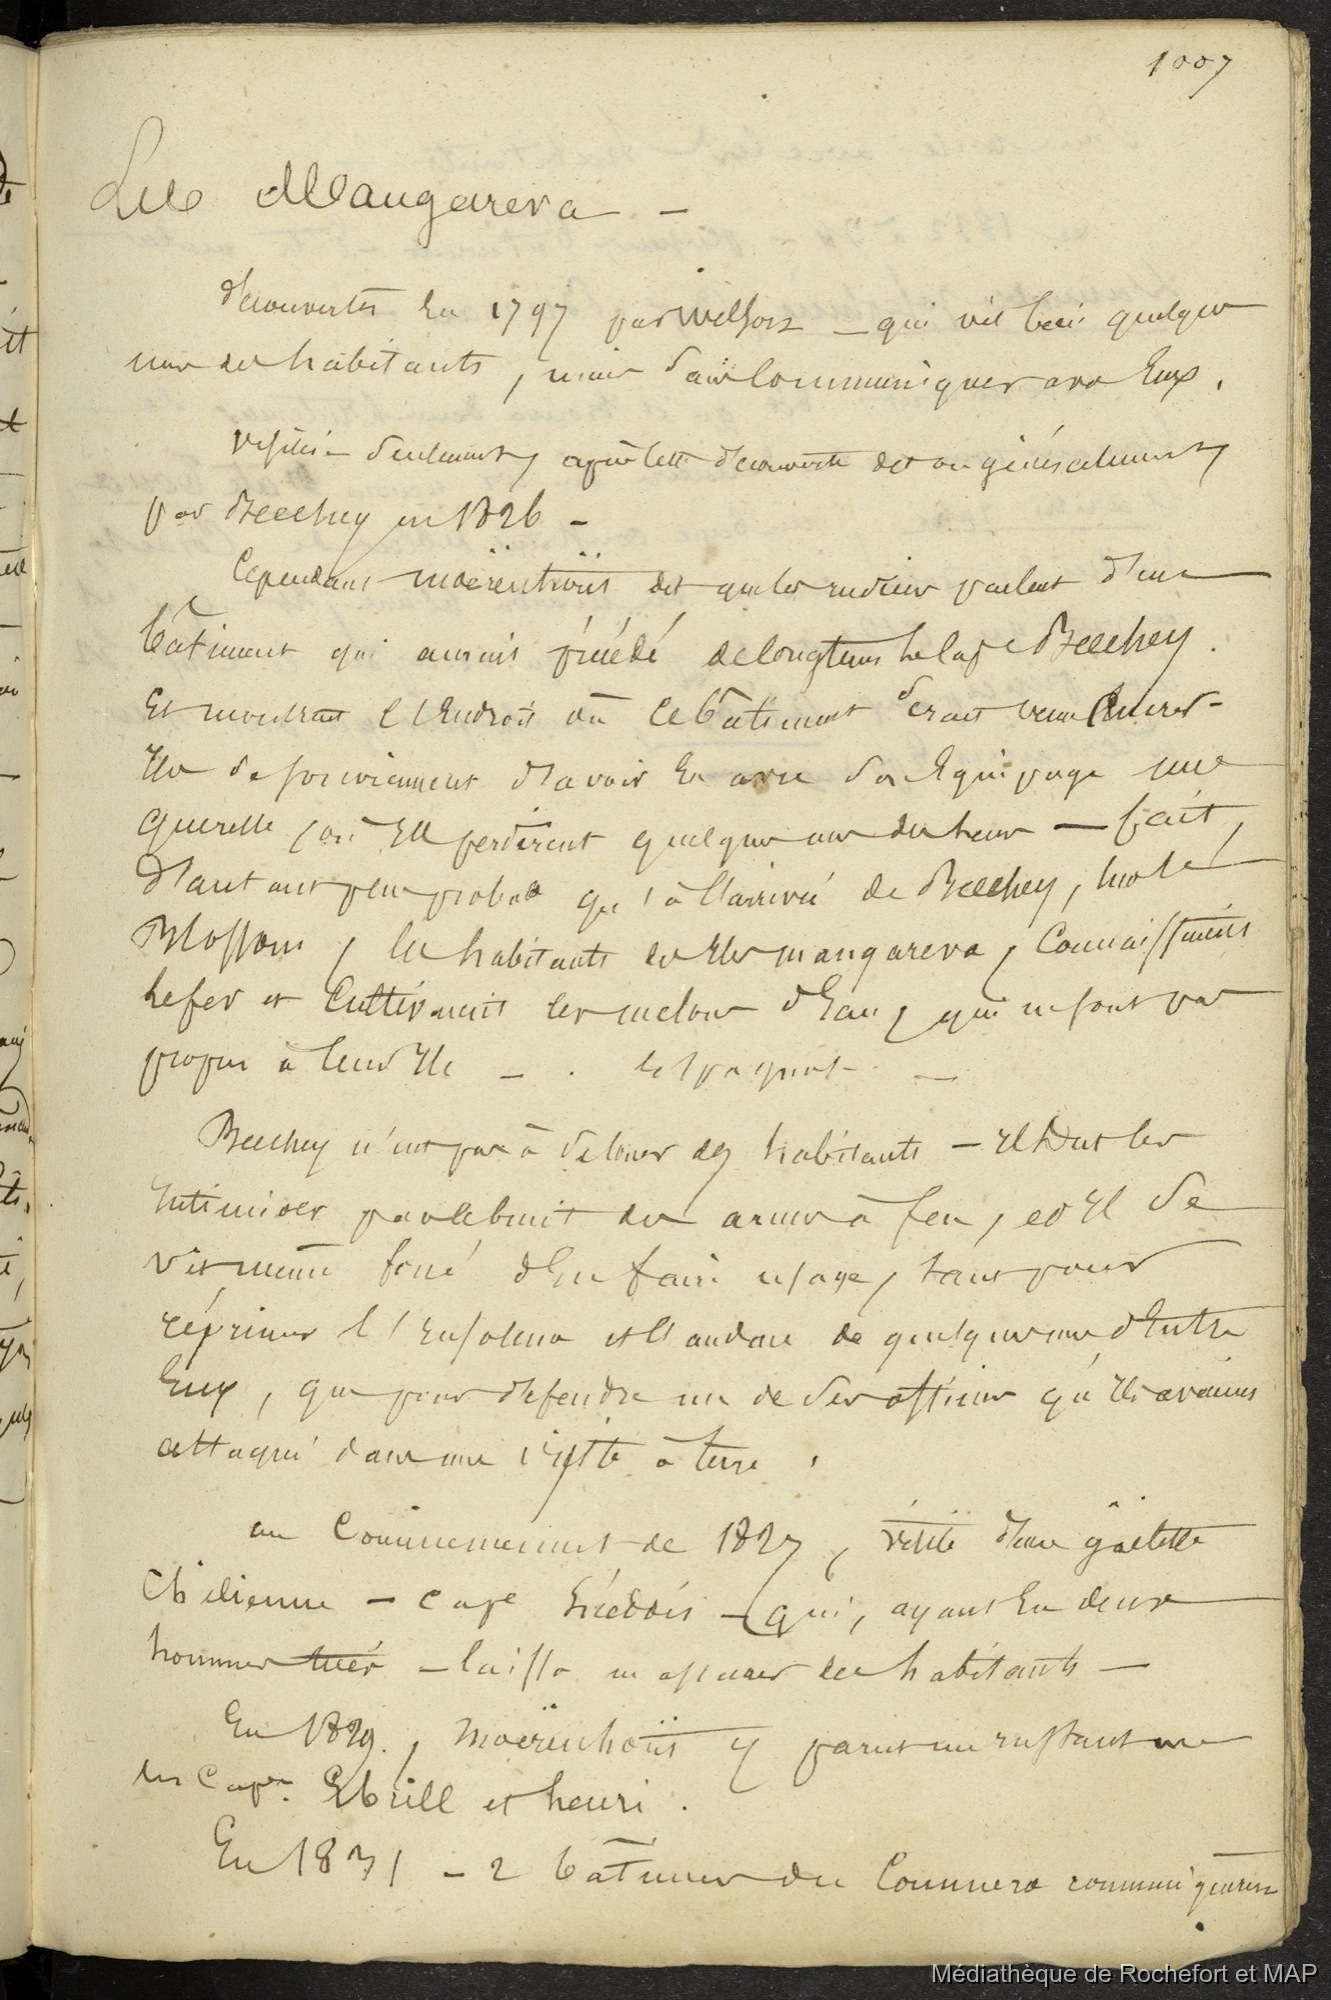 1007
Iles Mangareva -
découvertes en 1797 par Wilson - qui vit bien quelques
uns des habitants, mais sans communiquer avec eux.
visitées seulement, après cette découverte dit on généralement,
par Beechey en 1826 -
Cependant moërenhoüt dit que les indiens parlent d'un
bâtiment qui aurait précédé de longtems le cape Beechey.
Et montrent l'Endroit où ce bâtiment serait venu ancrer -
Ils se souviennent d'avoir eu avec son Equipage une
querelle, où Ils perdirent quelques uns des leurs - fait,
d'autant plus probable qu'à l'arrivée de Beechey, sur le
Blossom, les habitants des Iles mangareva, connaissaient
le fer et cultivaient les melons d'Eau, qui ne sont pas
propres à leurs Iles - .
Beechey n'eut pas à se louer des habitants - Il dut les
intimider par le bruit des armes à feu, et Il se
vit même forcé d'En faire usage, tant pour
réprimer l'insolence et l'audace de quelques uns d'Entre
Eux, que pour défendre un de ses officiers qu'Ils avaient
attaqué dans une visite à terre.
au commencement de 1827, visite d'une goëlette
Chilienne - cape - qui, ayant eu deux
hommes tués - laissa massacrer les habitants -
En 1829, Moërenhoüt y parut un instant avec
les Capes Ebrill et henri.
En 1831 - 2 bâtimens du Commerce communiquèrent
Médiathèque de Rochefort et MAP